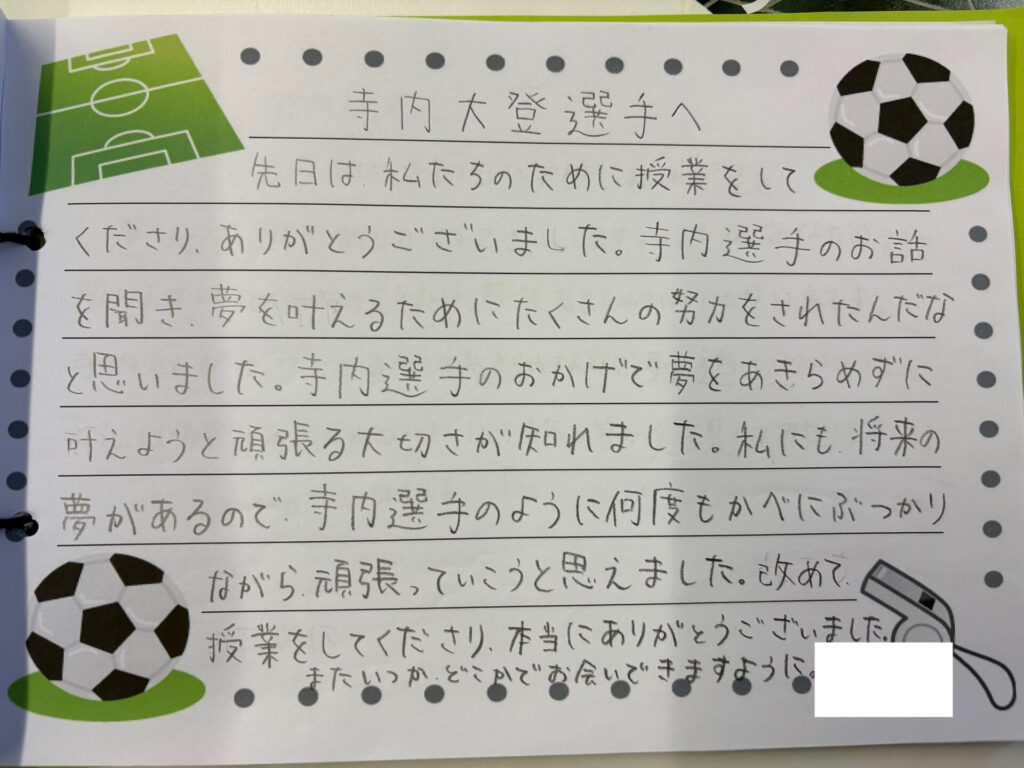 寺内大登選手へ
先日は、私たちのために授業をして
くださり、ありがとうございました。寺内選手のお話
を聞き、夢を叶えるためにたくさんの努力をされたんだな
と思いました。寺内選手のおかげで夢をあきらめずに
叶えようと頑張る大切さが知れました。私にも、将来の
夢があるので、寺内選手のように何度もかべにぶつかり
ながら、頑張っていこうと思えました。改めて、
授業をしてくださり、本当にありがとうございました。
またいつか、どこかでお会いできますように。